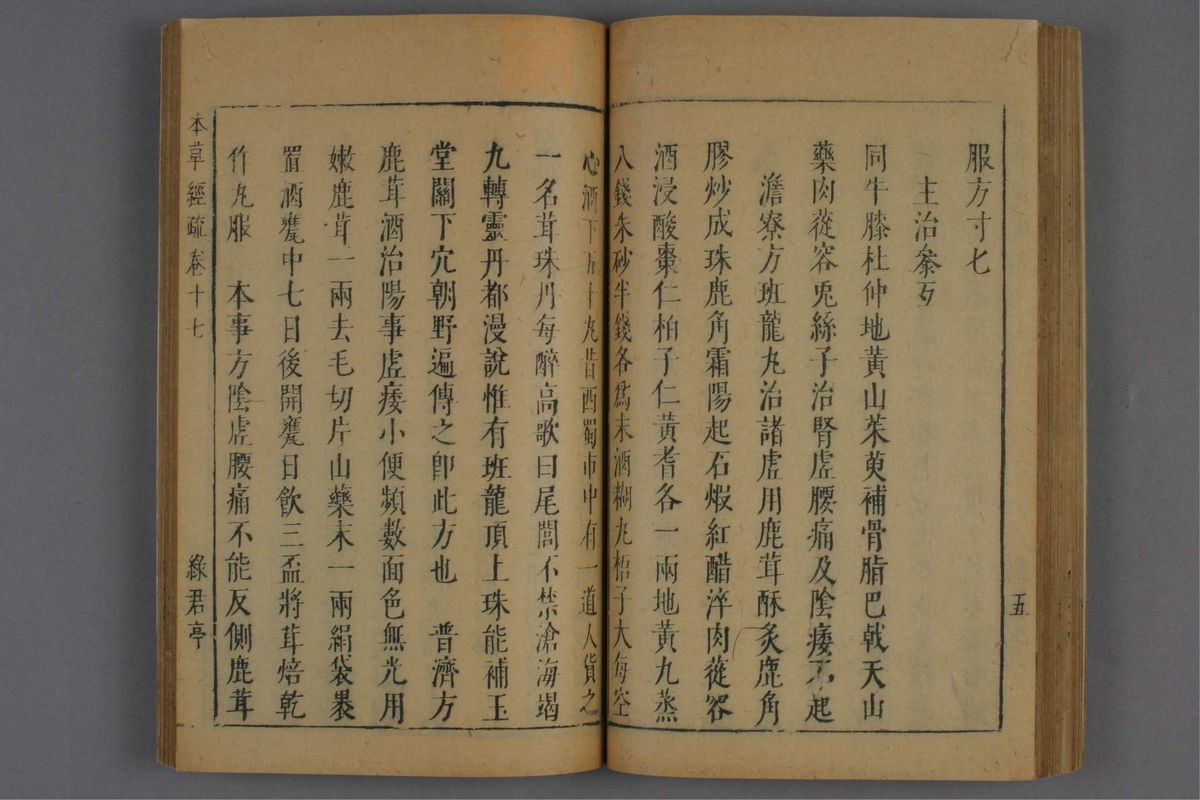 服方寸匕
主治參互
同牛膝杜仲地黃山茱萸補骨脂巴戟天山
藥肉蓯容兎絲子治腎虛腰痛及陰痿不起
澹寮方班龍丸治諸虛用鹿茸酥炙鹿角
膠炒成珠鹿角霜陽起石煆紅醋淬肉蓯容
酒浸酸棗仁柏子仁黃耆各一兩地黃九蒸
八錢朱砂半錢各爲末酒糊丸梧子大每空
心酒下五十丸昔西蜀市中有一道人貨之
一名茸珠丹每醉高歌曰尾閭不禁滄海竭
九轉靈丹都漫說惟有班龍頂上珠能補玉
堂關下穴朝野遍傳之卽此方也　普濟方
鹿茸酒治陽事虛痿小便頻數面色無光用
嫩鹿茸一兩去毛切片山藥末一兩絹袋褁
置酒甕中七日後開甕日飮三盃將茸焙乾
作丸服　本事方陰虛腰痛不能反側鹿茸
本草經疏卷十七
綠君亭
五